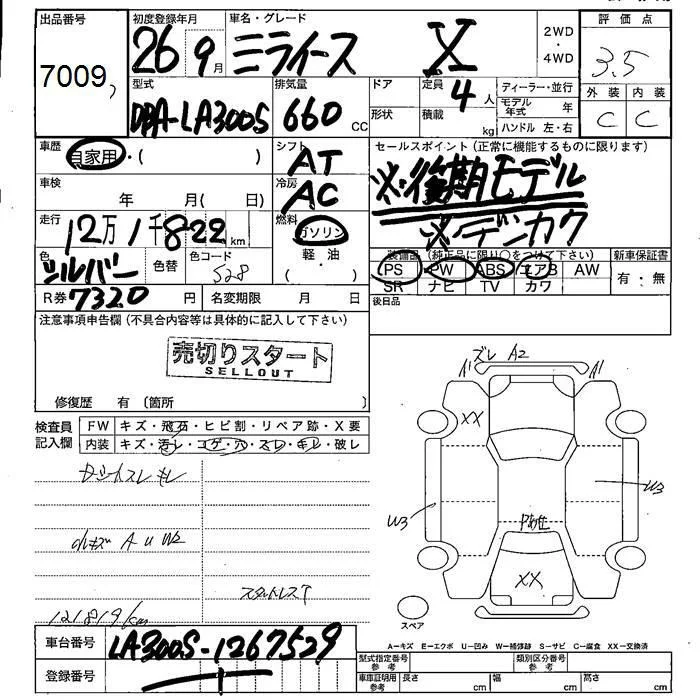 出品番号 初度登録年月 車名・グレード 2WD・4WD 評価点
7009 26年9月 ミライース X 3.5
型式 排気量 ドア 定員 ディーラー・並行 外装 内装
DBA-LA300S 660 CC 形状 4人 モデル年式 年 C C
積載 kg ハンドル 左・右
車歴 自家用・( ) シフト AT セールスポイント(正常に機能するものに限ります)
車検 年 月( 日) 冷房 AC ※後期モデル
走行 12万1千822km 燃料 ガソリン ※デンカク
色 シルバー 色替 色コード S28 軽・油 ( ) 装備品(純正品に限り○をつけて下さい) 新車保証書
PS PW ABS エアB AW 有・無
R券 7320円 名変期限 月 日 SR ナビ TV カワ
注意事項申告欄(不具合内容等は具体的に記入して下さい) 後日品
売切りスタート
SELLOUT
修復歴 有 〔箇所 〕
ズレ A2
A1 A1
XX
検査員記入欄 FW キズ・飛石・ヒビ割・リペア跡・X要
内装 キズ・汚レ・コゲ・穴・スレ・キレ・破レ
シートスレ キレ
W3 W3
小キズ A U W2
XX
121819km
スペア
A=キズ E=エクボ U=凹み W=補修跡 S=サビ C=腐食 XX=交換済
車台番号 LA300S-1267529
型式指定番号 参考 類別区分番号 参考
登録番号 車庫証明用 参考 長さ cm 幅 cm 高さ cm